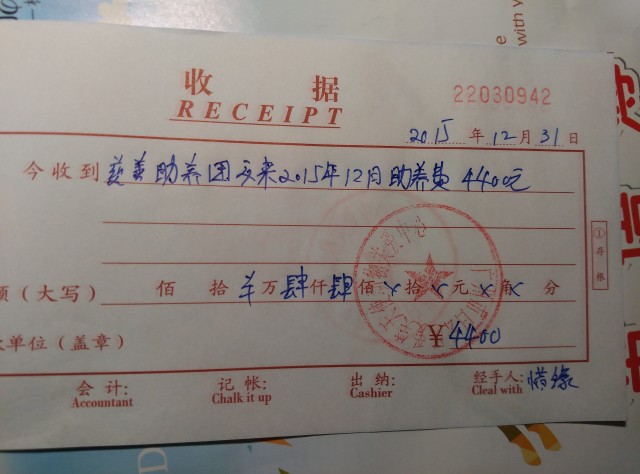 收 据
RECEIPT
22030942
2015 年 12 月 31 日
今收到 慈善助养团交来2015年12月助养费 4400元
额(大写) 佰 拾 羊 万 肆 仟 肆 佰 x 拾 x 元 x 角 x 分
¥ 4400
单位(盖章)
会 计: 记 帐: 出 纳: 经手人: 惜缘
Accountant Chalk it up Cashier Cleal with
①存根
e
with y